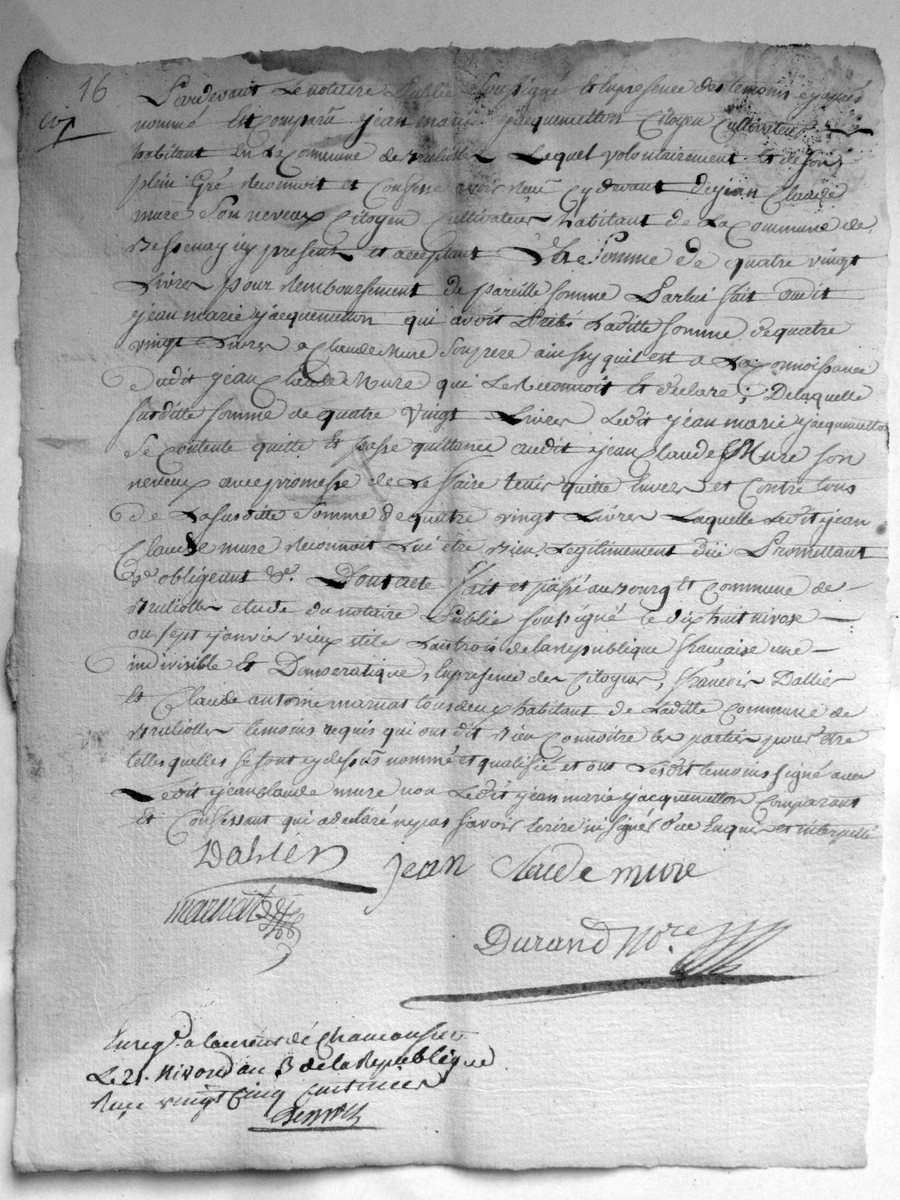 16
Pardevant Le notaire Public Soussigné Et En presence des temoins cy apres
nommé Est Comparu jean marie jacquemetton Citoyen Cultivateur
habitant En La Commune de Brulliolles Lequel volontairement Et de son
plein Gré Reconnoit et Confesse avoir Recu Cydevant de jean Claude
mure Son neveux Citoyen Cultivateur habitant de La Commune de
Bessenay icy present et aceptant La Somme de quatre vingt
Livres pour Remboursement de pareille Somme Par lui fait audit
jean marie jacquemetton qui avoit Prété Laditte Somme de quatre
vingt Livres a Claude Mure Son frere ainssy quil est a La Connoissance
dudit jean Claude Mure qui Le Reconnoit Et declare ; De laquelle
susditte somme de quatre vingt Livres Ledit jean marie jacquemetton
Se Contente quitte Et passe quittance audit jean Claude Mure Son
neveux avec promesse de Le faire tenir quitte Envers et Contre tous
de La susditte Somme de quatre vingt Livres Laquelle Ledit jean
Claude mure Reconnoit Lui être Bien Legitimement düe Promettant
&a obligeant &a. Dont acte fait et passé au Bourg Et Commune de
Brulliolles etude du notaire Public soussigné le dix huit nivose
ou sept janvier vieux stile Lan trois de la Republique francaise une
indivisible Et Democratique, En presence des Citoyens, francois Dallier
Et Claude antoine marnat tous deux habitant de Laditte Commune de
Brulliolles temoins requis qui ont dit Bien Connoitre les parties pour être
telles quelles se sont cy dessus nommé et qualifié et ont Lesdits temoins signé avec
Ledit jean claude mure non Ledit jean marie jacquemetton Comparant
et Confessant qui a declaré ne pas savoir Ecrire ni signer de ce Enquis et interpellé
Dalier jean Claude mure
marnat
Durand Nore
Enregt. a Laureur de Chamousset
Le 21 Nivose an 3 de la Republique
Reçu vingt Cinq